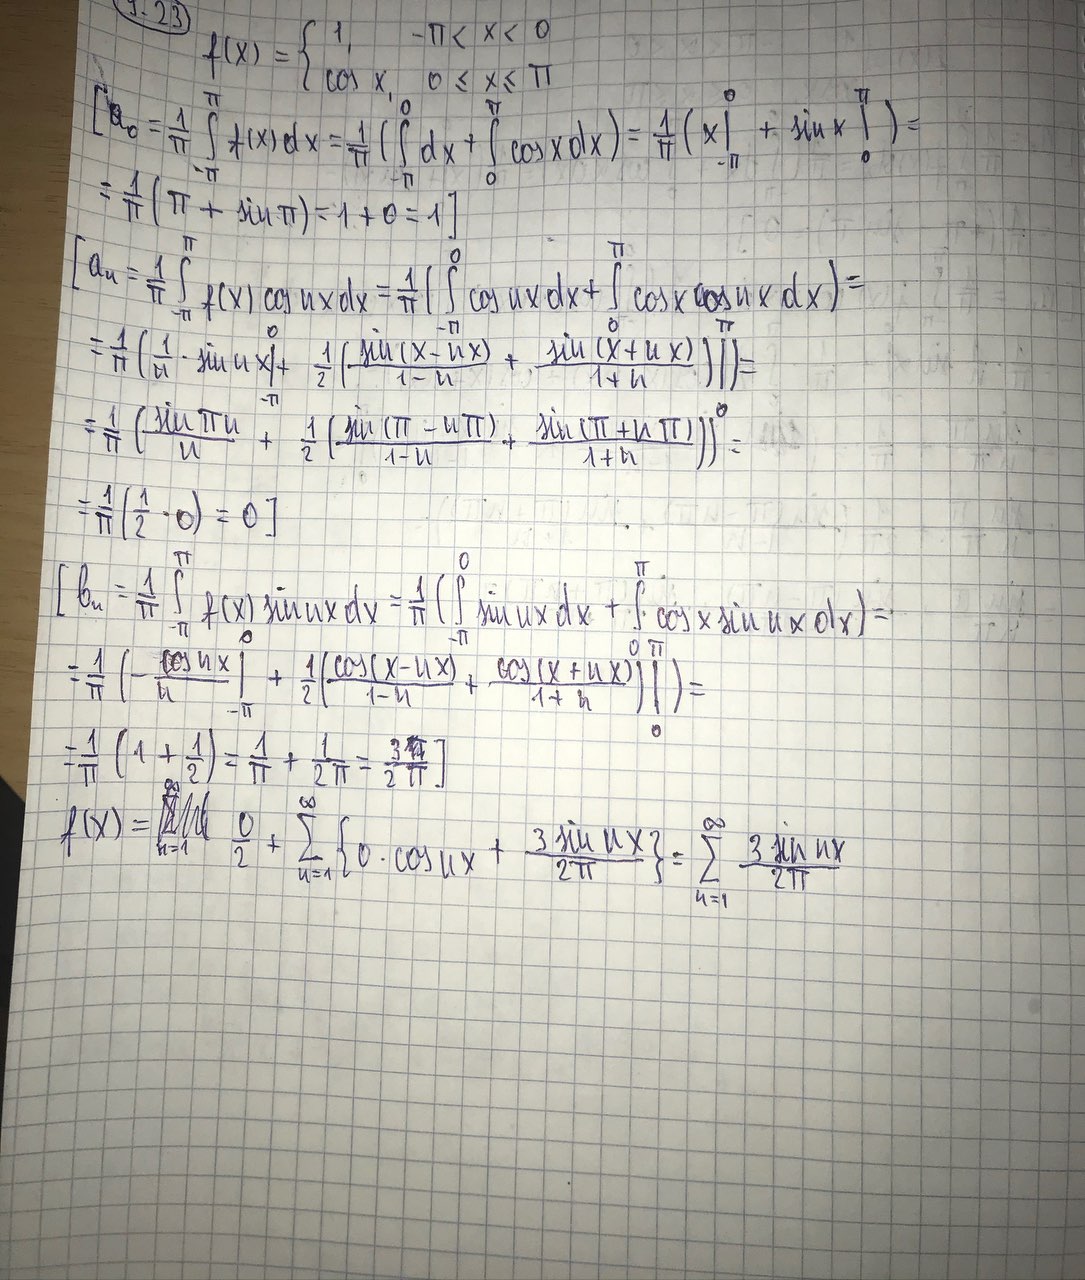 7.23
f(x) = { 1, -π < x < 0
cos x, 0 ≤ x ≤ π
[a₀ = 1/π ∫_{-π}^{π} f(x)dx = 1/π (∫_{-π}^{0} dx + ∫_{0}^{π} cos x dx) = 1/π (x|_{-π}^{0} + sin x|_{0}^{π}) =
= 1/π (π + sin π) = 1 + 0 = 1]
[aₙ = 1/π ∫_{-π}^{π} f(x) cos nx dx = 1/π (∫_{-π}^{0} cos nx dx + ∫_{0}^{π} cos x cos nx dx) =
= 1/π (1/n · sin nx|_{-π}^{0} + 1/2 (sin(x-nx)/(1-n) + sin(x+nx)/(1+n))|^{π}) =
= 1/π (sin πn/n + 1/2 (sin(π-nπ)/(1-n) + sin(π+nπ)/(1+n)))^{0} =
= 1/π (1/2 · 0) = 0]
[bₙ = 1/π ∫_{-π}^{π} f(x) sin nx dx = 1/π (∫_{-π}^{0} sin nx dx + ∫_{0}^{π} cos x sin nx dx) =
= 1/π (- cos nx/n |_{-π}^{0} + 1/2 (cos(x-nx)/(1-n) + cos(x+nx)/(1+n))|_{0}^{π}) =
= 1/π (1 + 1/2) = 1/π + 1/2π = 3/2π]
f(x) = 0/2 + ∑_{n=1}^{∞} {0 · cos nx + 3 sin nx/2π} = ∑_{n=1}^{∞} 3 sin nx/2π